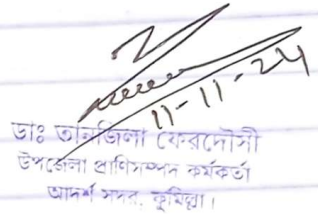 11-11-24
ডাঃ তানজিলা ফেরদৌসী
উপজেলা প্রাণিসম্পদ কর্মকর্তা
আদর্শ সদর, কুমিল্লা।